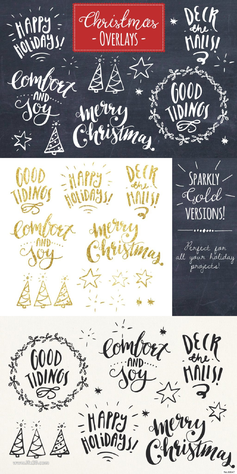 HAPPY
HOLIDAYS!
Christmas
OVERLAYS
DECK
the
HALLS!
Comfort
AND
Joy
Merry
Christmas
GOOD
TIDINGS
GOOD
TIDINGS
HAPPY
HOLIDAYS!
DECK
the
HALLS!
Comfort
AND
Joy
Merry
Christmas
SPARKLY
Gold
VERSIONS!
Perfect for
all your holiday
projects!
GOOD
TIDINGS
Comfort
AND
Joy
DECK
the
HALLS!
HAPPY
HOLIDAYS!
Merry
Christmas